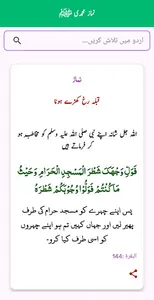 نماز محمدی ﷺ
اردو میں تلاش کریں...
نماز
قبلہ رخ کھڑے ہونا
اللہ جل شانہ اپنے نبی صلی اللہ علیہ وسلم کو مخاطب ہو
کر فرماتے ہیں
فَوَلِّ وَجْهَكَ شَطْرَ الْمَسْجِدِ الْحَرَامِ وَحَيْثُ
مَا كُنْتُمْ فَوَلُّوا وُجُوْهَكُمْ شَطْرَهُ
پس اپنے چہرے کو مسجد حرام کی طرف
پھیر لیں اور جہاں کہیں تم ہو اپنے چہروں
کو اسی طرف کیا کرو۔
البقرة :144